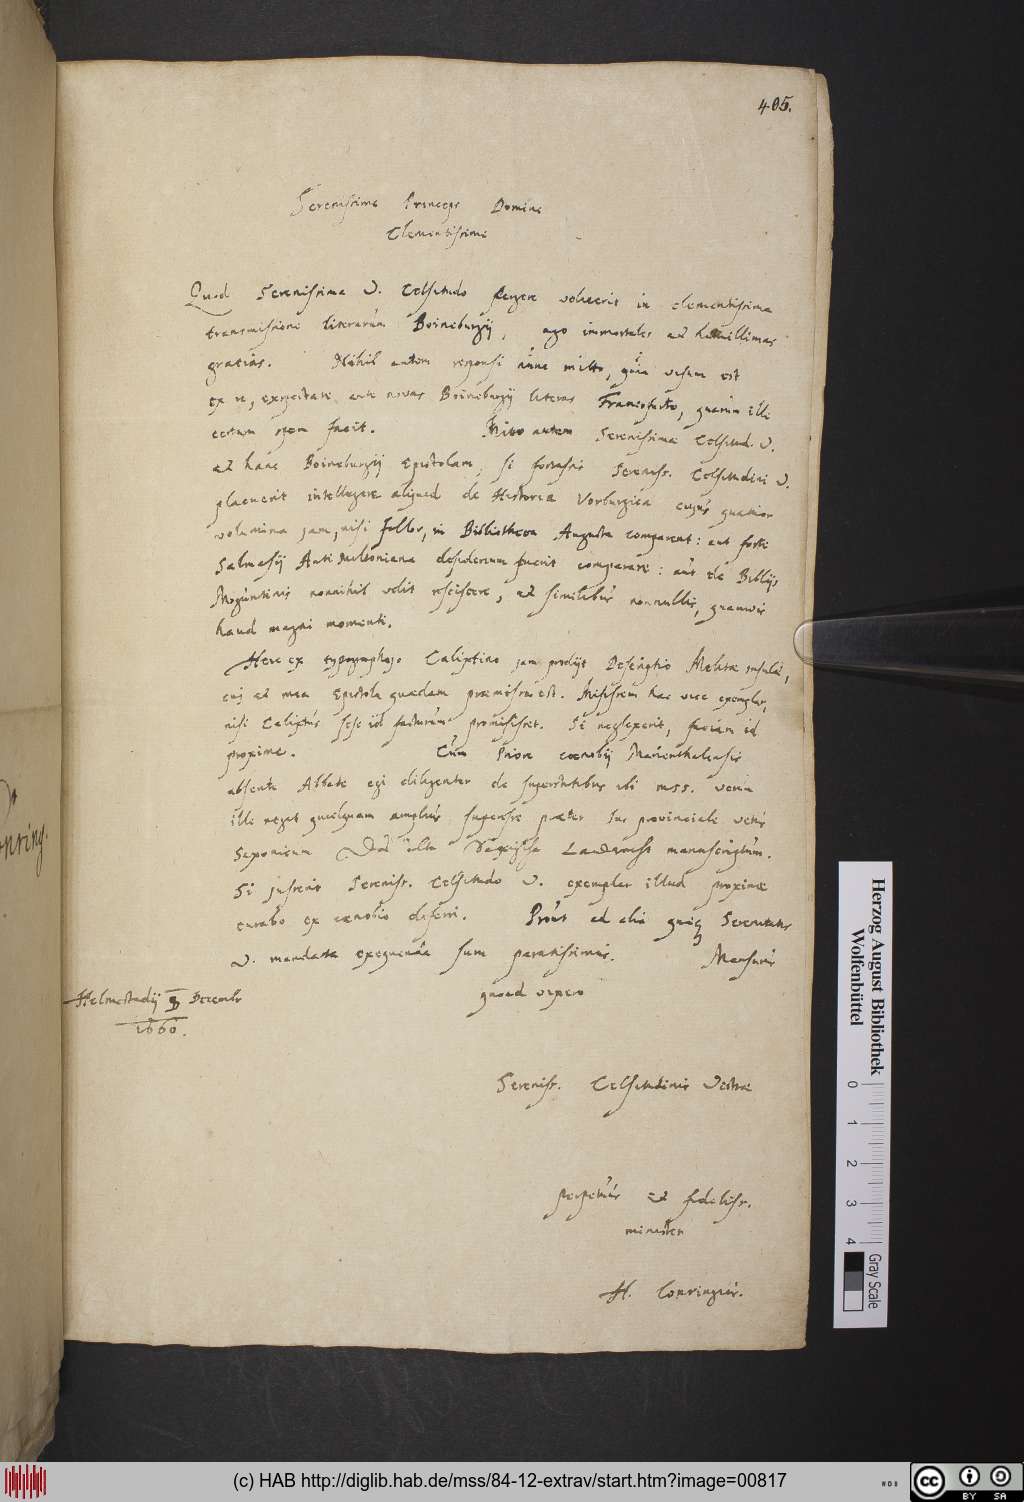 405.
Serenissime Princeps Domine
Clementissime
Quod Serenissima V. Celsitudo pergere voluerit in clementissima
transmissione literarum Boineburgij, ago immortales et humillimas
gratias. Nihil autem responsi nunc mitto, quia visum est
ex re, expectare ante novas Boineburgij literas Francofurto, quarum illi
certum spem facit. Mitto autem Serenissimae Celsitud. V.
et hanc Boineburgij Epistolam, si forsitan Sereniss. Celsitudini V.
placuerit intellegere aliquid de Historia Vorburgica cujus quatuor
volumina jam, nisi fallor, in Bibliotheca Augusta comparent: aut forte
Salmasij Anti Miltoniana desiderium fuerit comparare: aut de Biblijs
Moguntinis nonnihil velit resciscere, et similibus nonnullis, quamvis
haud magni momenti.
Hic ex typographejo Calixtino jam prodijt Descriptio Maltae insulae,
cuj et mea Epistola quaedam praemissa est. Misissem hac vice exemplar,
nisi Calixtus sese id facturum promisisset. Si neglexerit, faciam id
proxime. Cum Priore coenobij Marienthalensis
absente Abbate egi diligenter de superstitibus ibi mss. verum
ille negat quidquam amplius superesse praeter Jus provinciale vetus
Saxonicum Das alte Landrecht manuscriptum.
Si jusserit Sereniss. Celsitudo V. exemplar illud proxime
curabo ex coenobio deferri. Prout ad alia quaeq Serenitatis
V. mandata exequenda sum paratissimus. Mansurus
quoad vixero
Helmestadij 3 Decembr
1660.
Sereniss. Celsitudinis Vestrae
perpetuus et fideliss.
minister
H. Conringius.
Herzog August Bibliothek
Wolfenbüttel
0 1 2 3 4
Gray Scale
(c) HAB http://diglib.hab.de/mss/84-12-extrav/start.htm?image=00817
cc BY SA